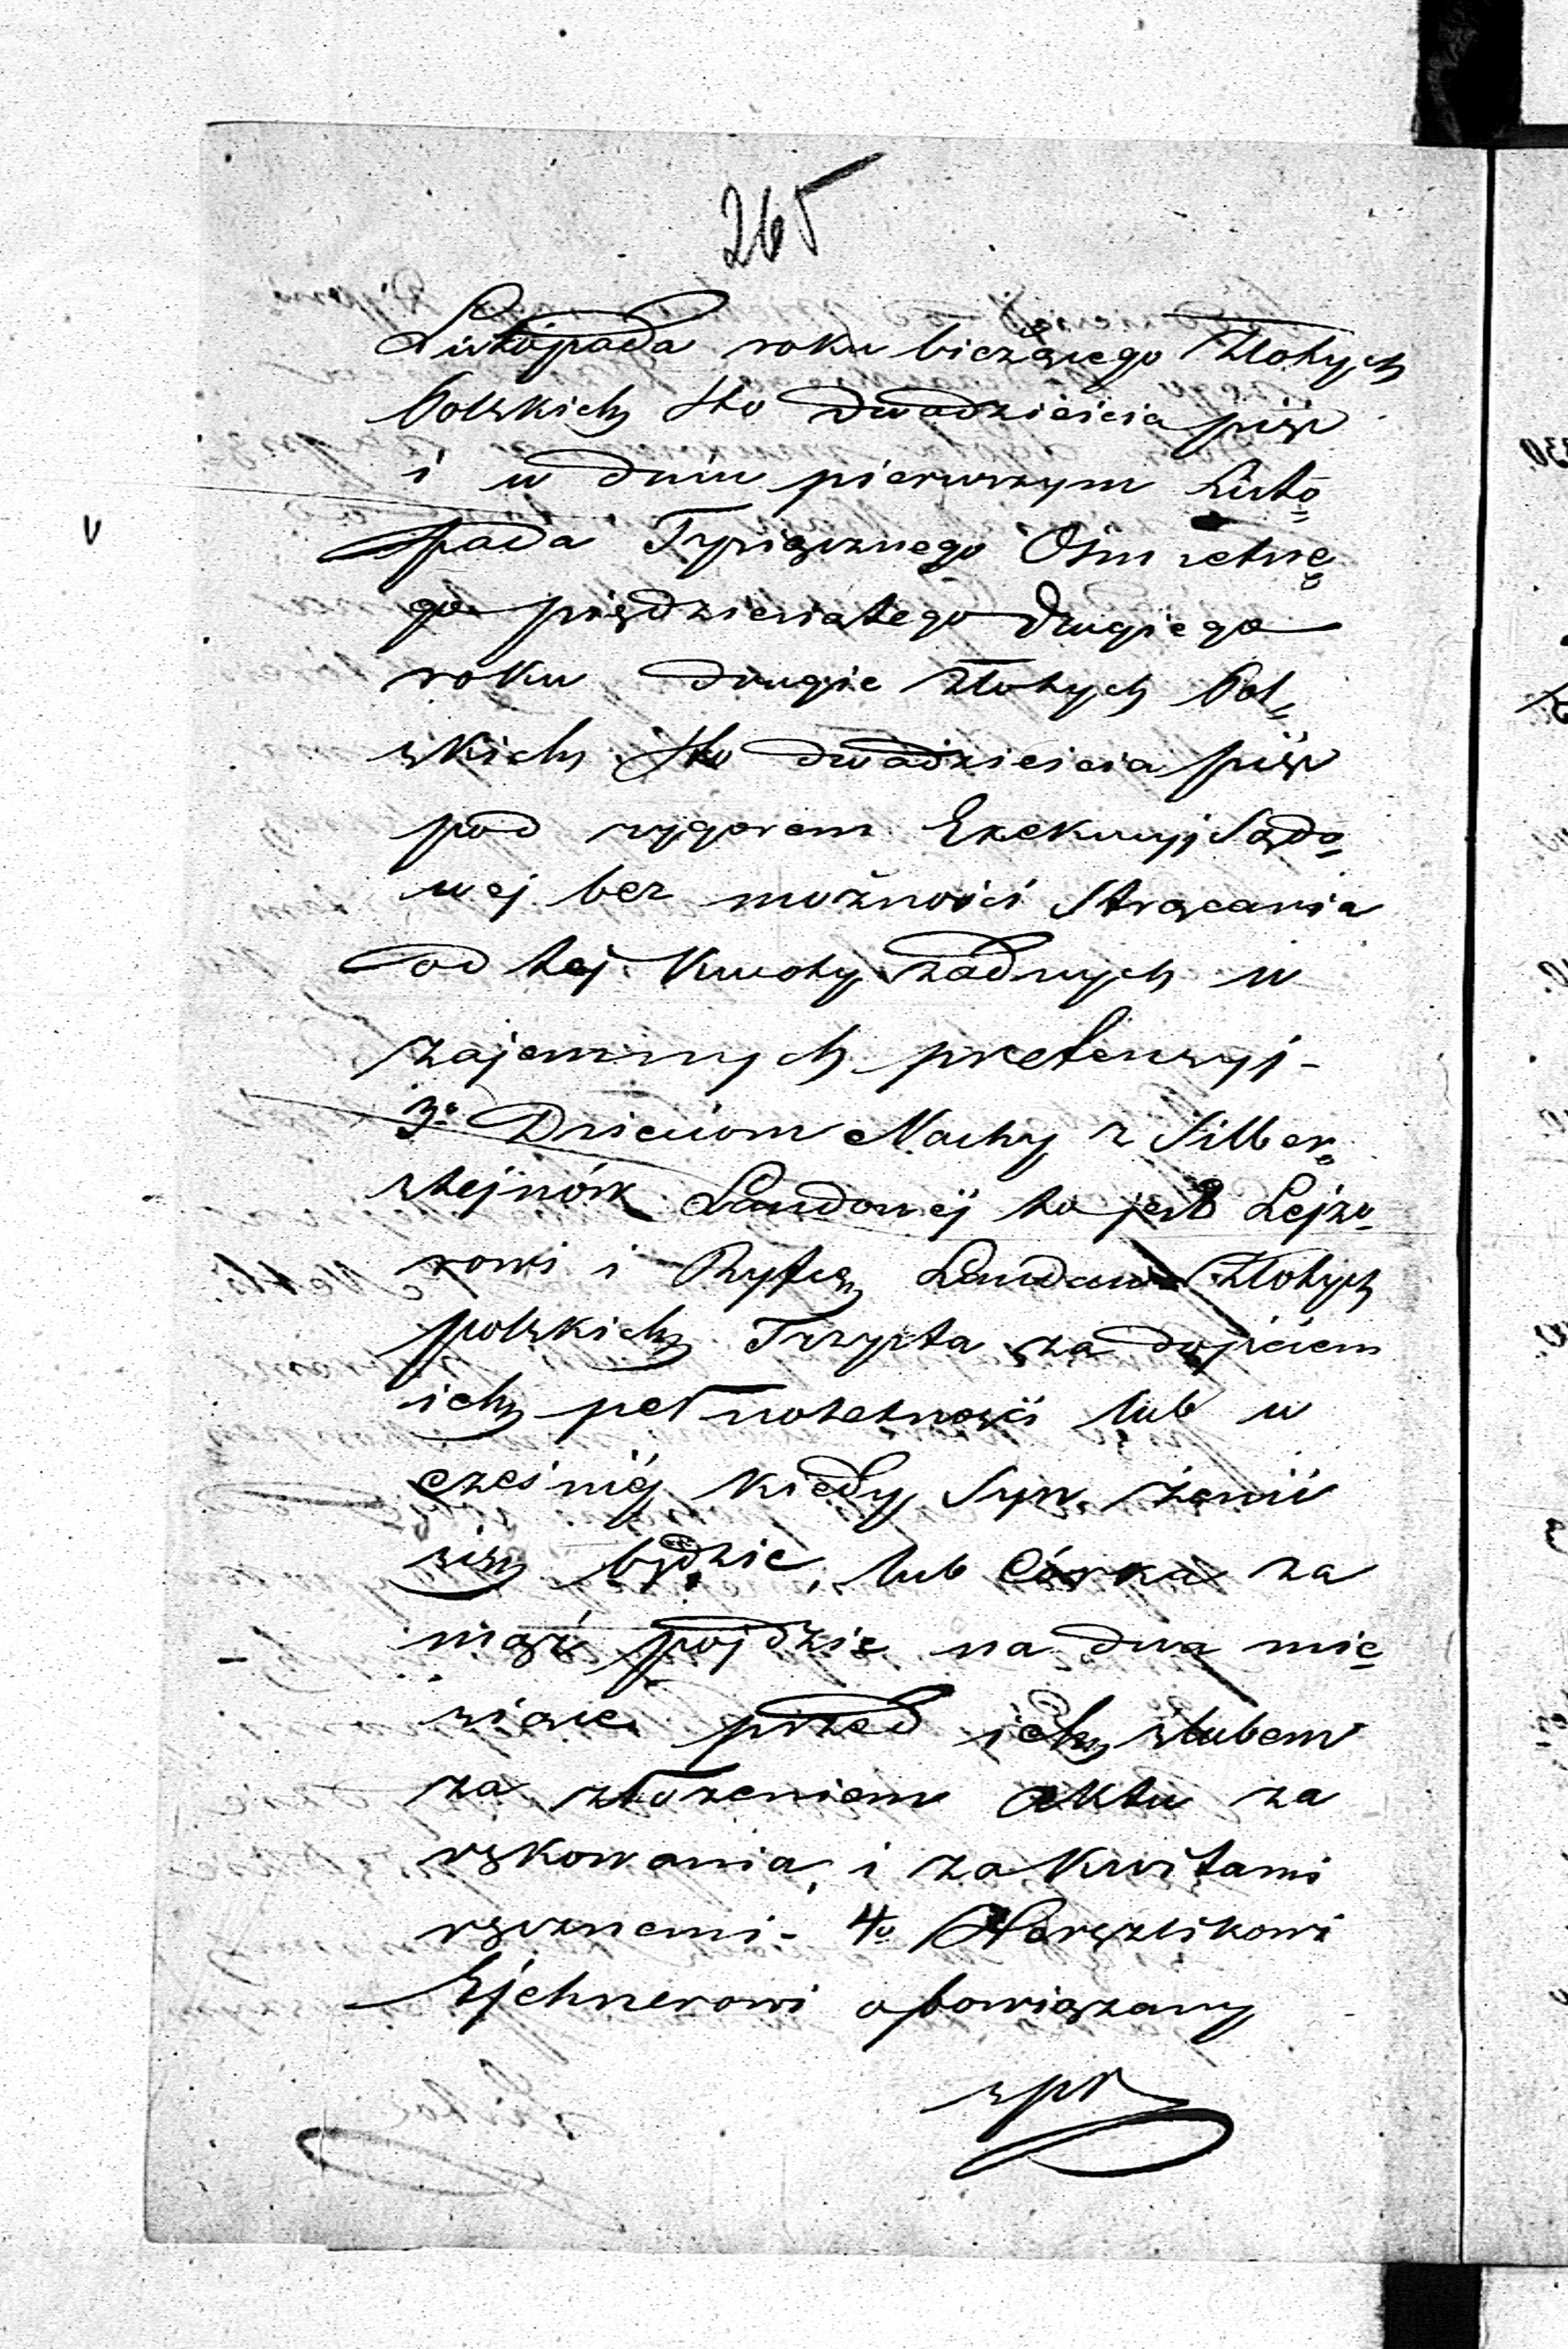 265
Listopada roku bieżącego Złotych
Polskich sto dwadzieścia pięć
i w dniu pierwszym Listo=
pada Tysiącznego Ośmsetne=
go pięćdziesiątego drugiego
roku drugie Złotych Pol=
skich sto dwadzieścia pięć
pod rygorem Exekucyj Sądo=
wej bez możności strącania
od tej kwoty żadnych w
zajemnych pretensyj-
3o Dzieciom Nachy z Silber=
sztejnów Landowej to jest Lejzo=
rowi i Ryfce Landau Złotych
polskich Trzysta za dojściem
ich pełnoletności lub w
cześniej kiedy Syn żenić
się będzie, lub Córka za
mąż pójdzie na dwa mie=
siące przed ich ślubem
za złożeniem aktu za
rękowania, i za kwitami
ręcznemi- 4o Herszlikowi
Ejchnerowi obowiązany